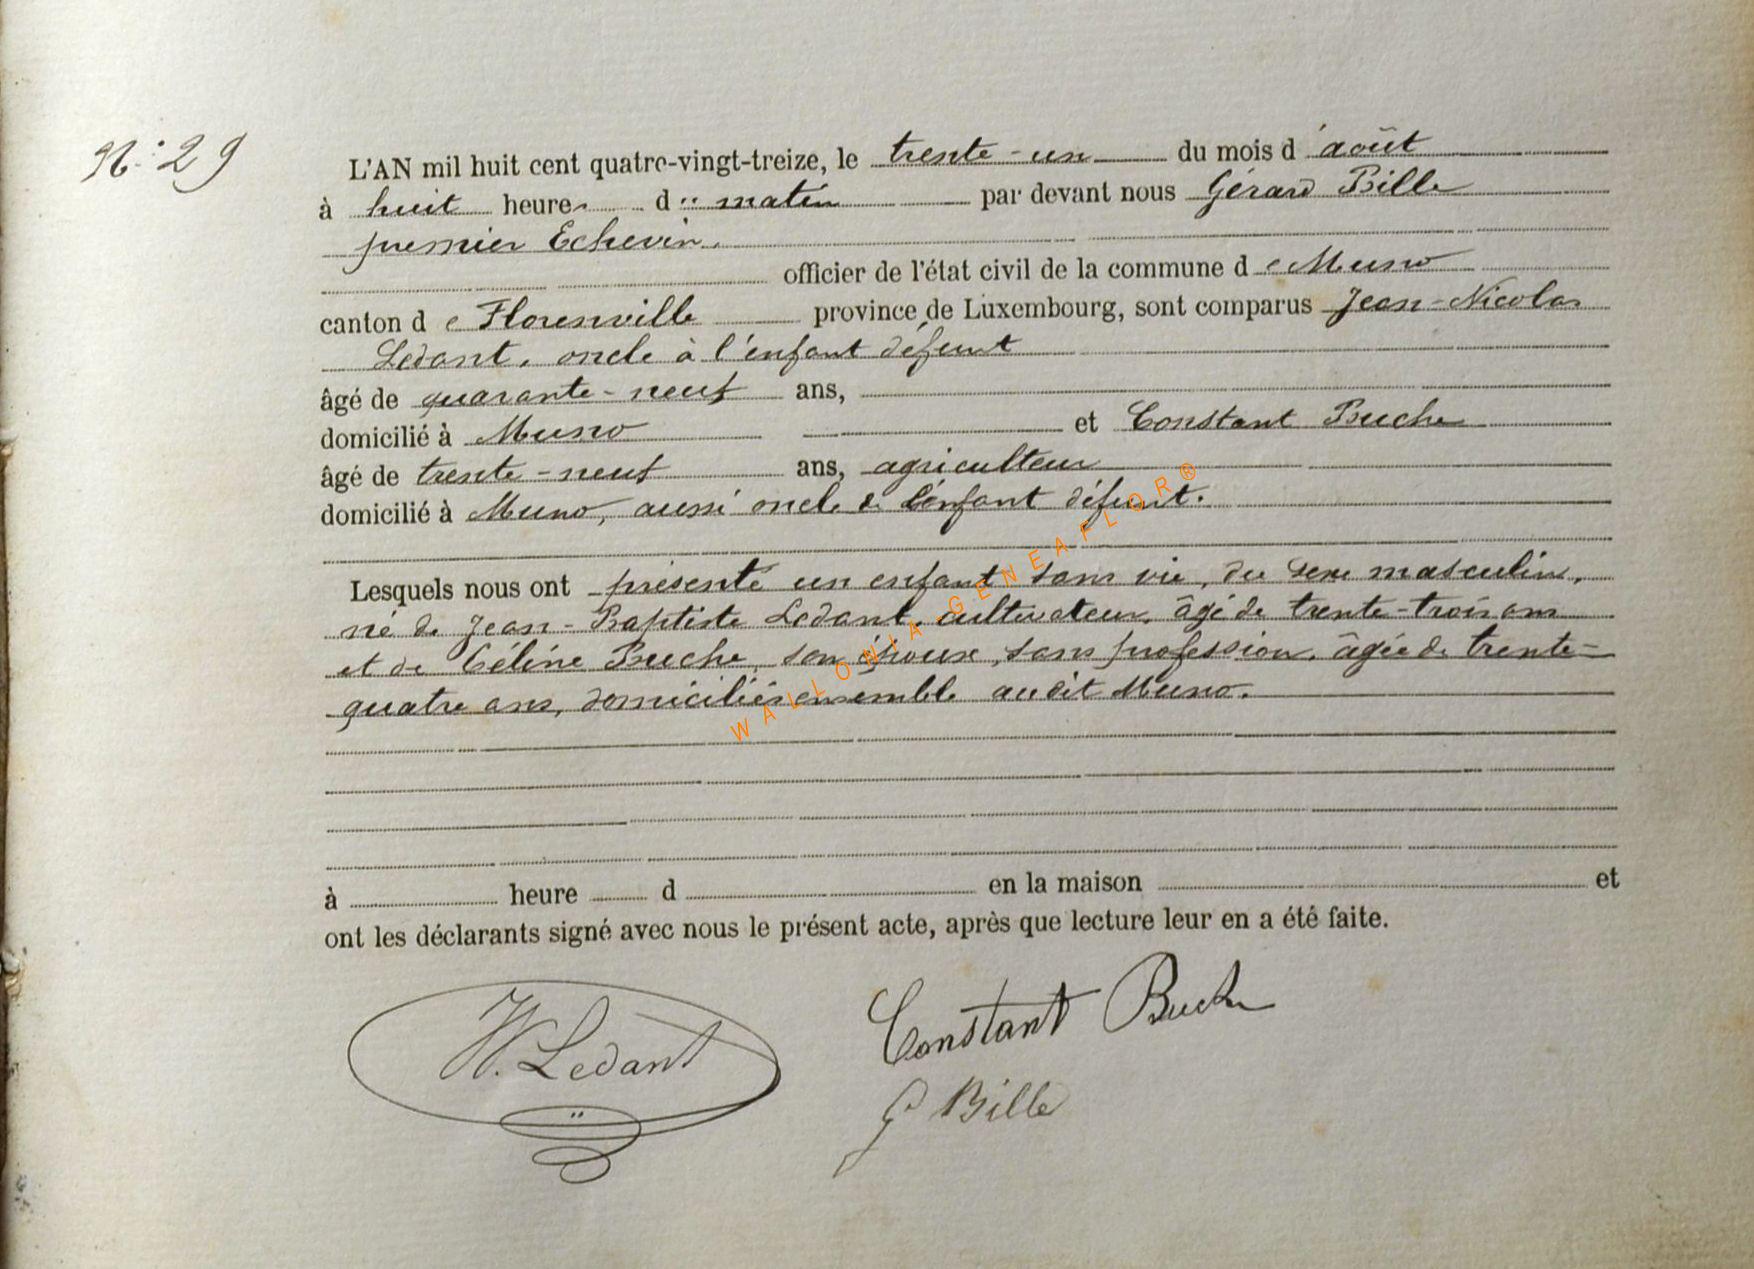 N.º 29
L'AN mil huit cent quatre-vingt-treize, le trente-un du mois d'août
à huit heures du matin par devant nous Gérard Bille
premier Echevin.
officier de l'état civil de la commune de Muno
canton de Florenville province de Luxembourg, sont comparus Jean-Nicolas
Ledant, oncle à l'enfant défunt
âgé de quarante-neuf ans,
domicilié à Muno et Constant Buche
âgé de trente-neuf ans, agriculteur
domicilié à Muno, aussi oncle à l'enfant défunt.
Lesquels nous ont présenté un enfant sans vie, du sexe masculin,
né de Jean-Baptiste Ledant, cultivateur, âgé de trente-trois ans
et de Céline Buche, son épouse, sans profession, âgée de trente-
quatre ans, domiciliés ensemble audit Muno.
à heure d en la maison et
ont les déclarants signé avec nous le présent acte, après que lecture leur en a été faite.
N. Ledant
Constant Buche
G Bille
WALLONIA GENEAFLOR®